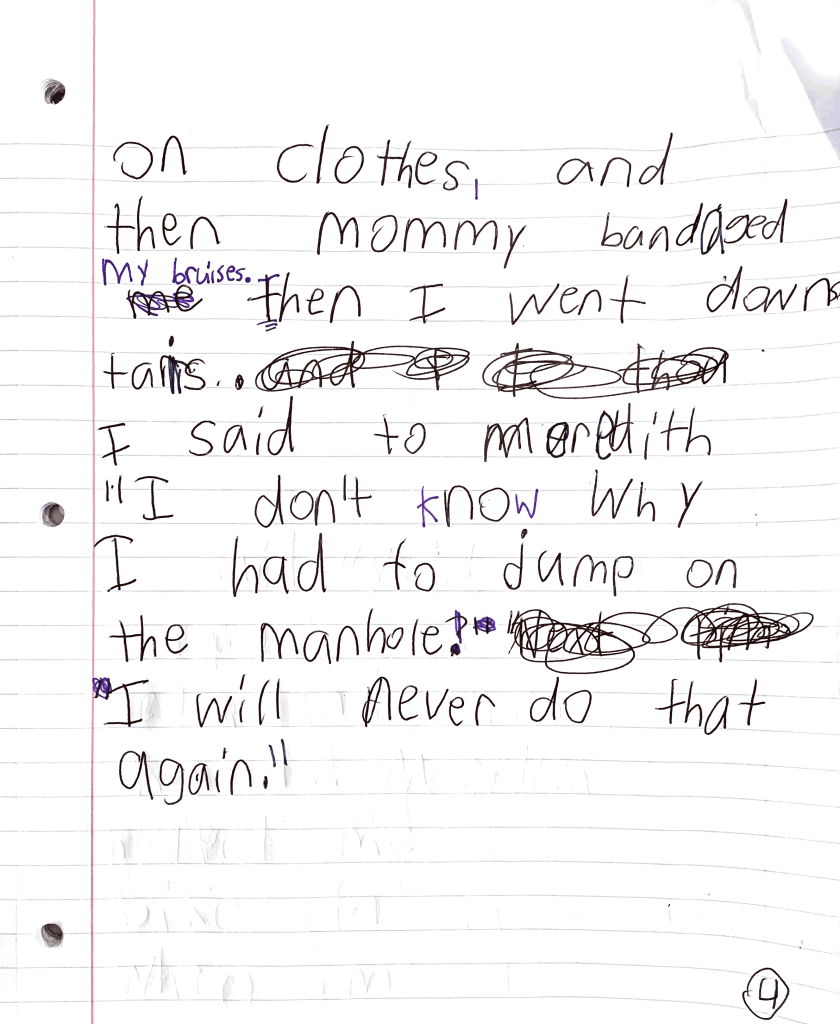 on clothes, and
then mommy bandaged
My bruises.
me Then I went downs
tairs.. and I to thea
I said to meredith
"I don't know Why
I had to jump on
the manhole!" "Next
"I will never do that
again."
4